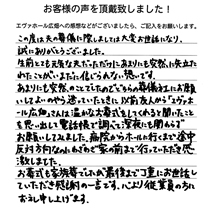 お客様の声を頂戴致しました！
エヴァホール広畑への感想などがございましたら、ご記入をお願いします。
この度は夫の葬儀に際しましては大変お世話になり、
誠にありがとうございました。
生前とても元気な夫でしたがあまりにも突然に失立た
れたことがいまだに信じられない思いです。
あまりにも突然のことでしたのでどちらの葬儀社さんにお願
いしようかと思っていたときに以前友人からエヴァホール
広畑さんは温かな葬式をしてくれると聞いたこと
を思い出して電話帳で調べて深夜にも関わらず
お願いしてみました。病院からホールへ行くまで途中
反対方向なのにもかかわらず家の前まで行っていただき感
激しました。
お葬式も家族葬でしたが最後まで丁重にお世話し
ていただき感謝の一言です。心より従業員の方に
お礼申し上げます。